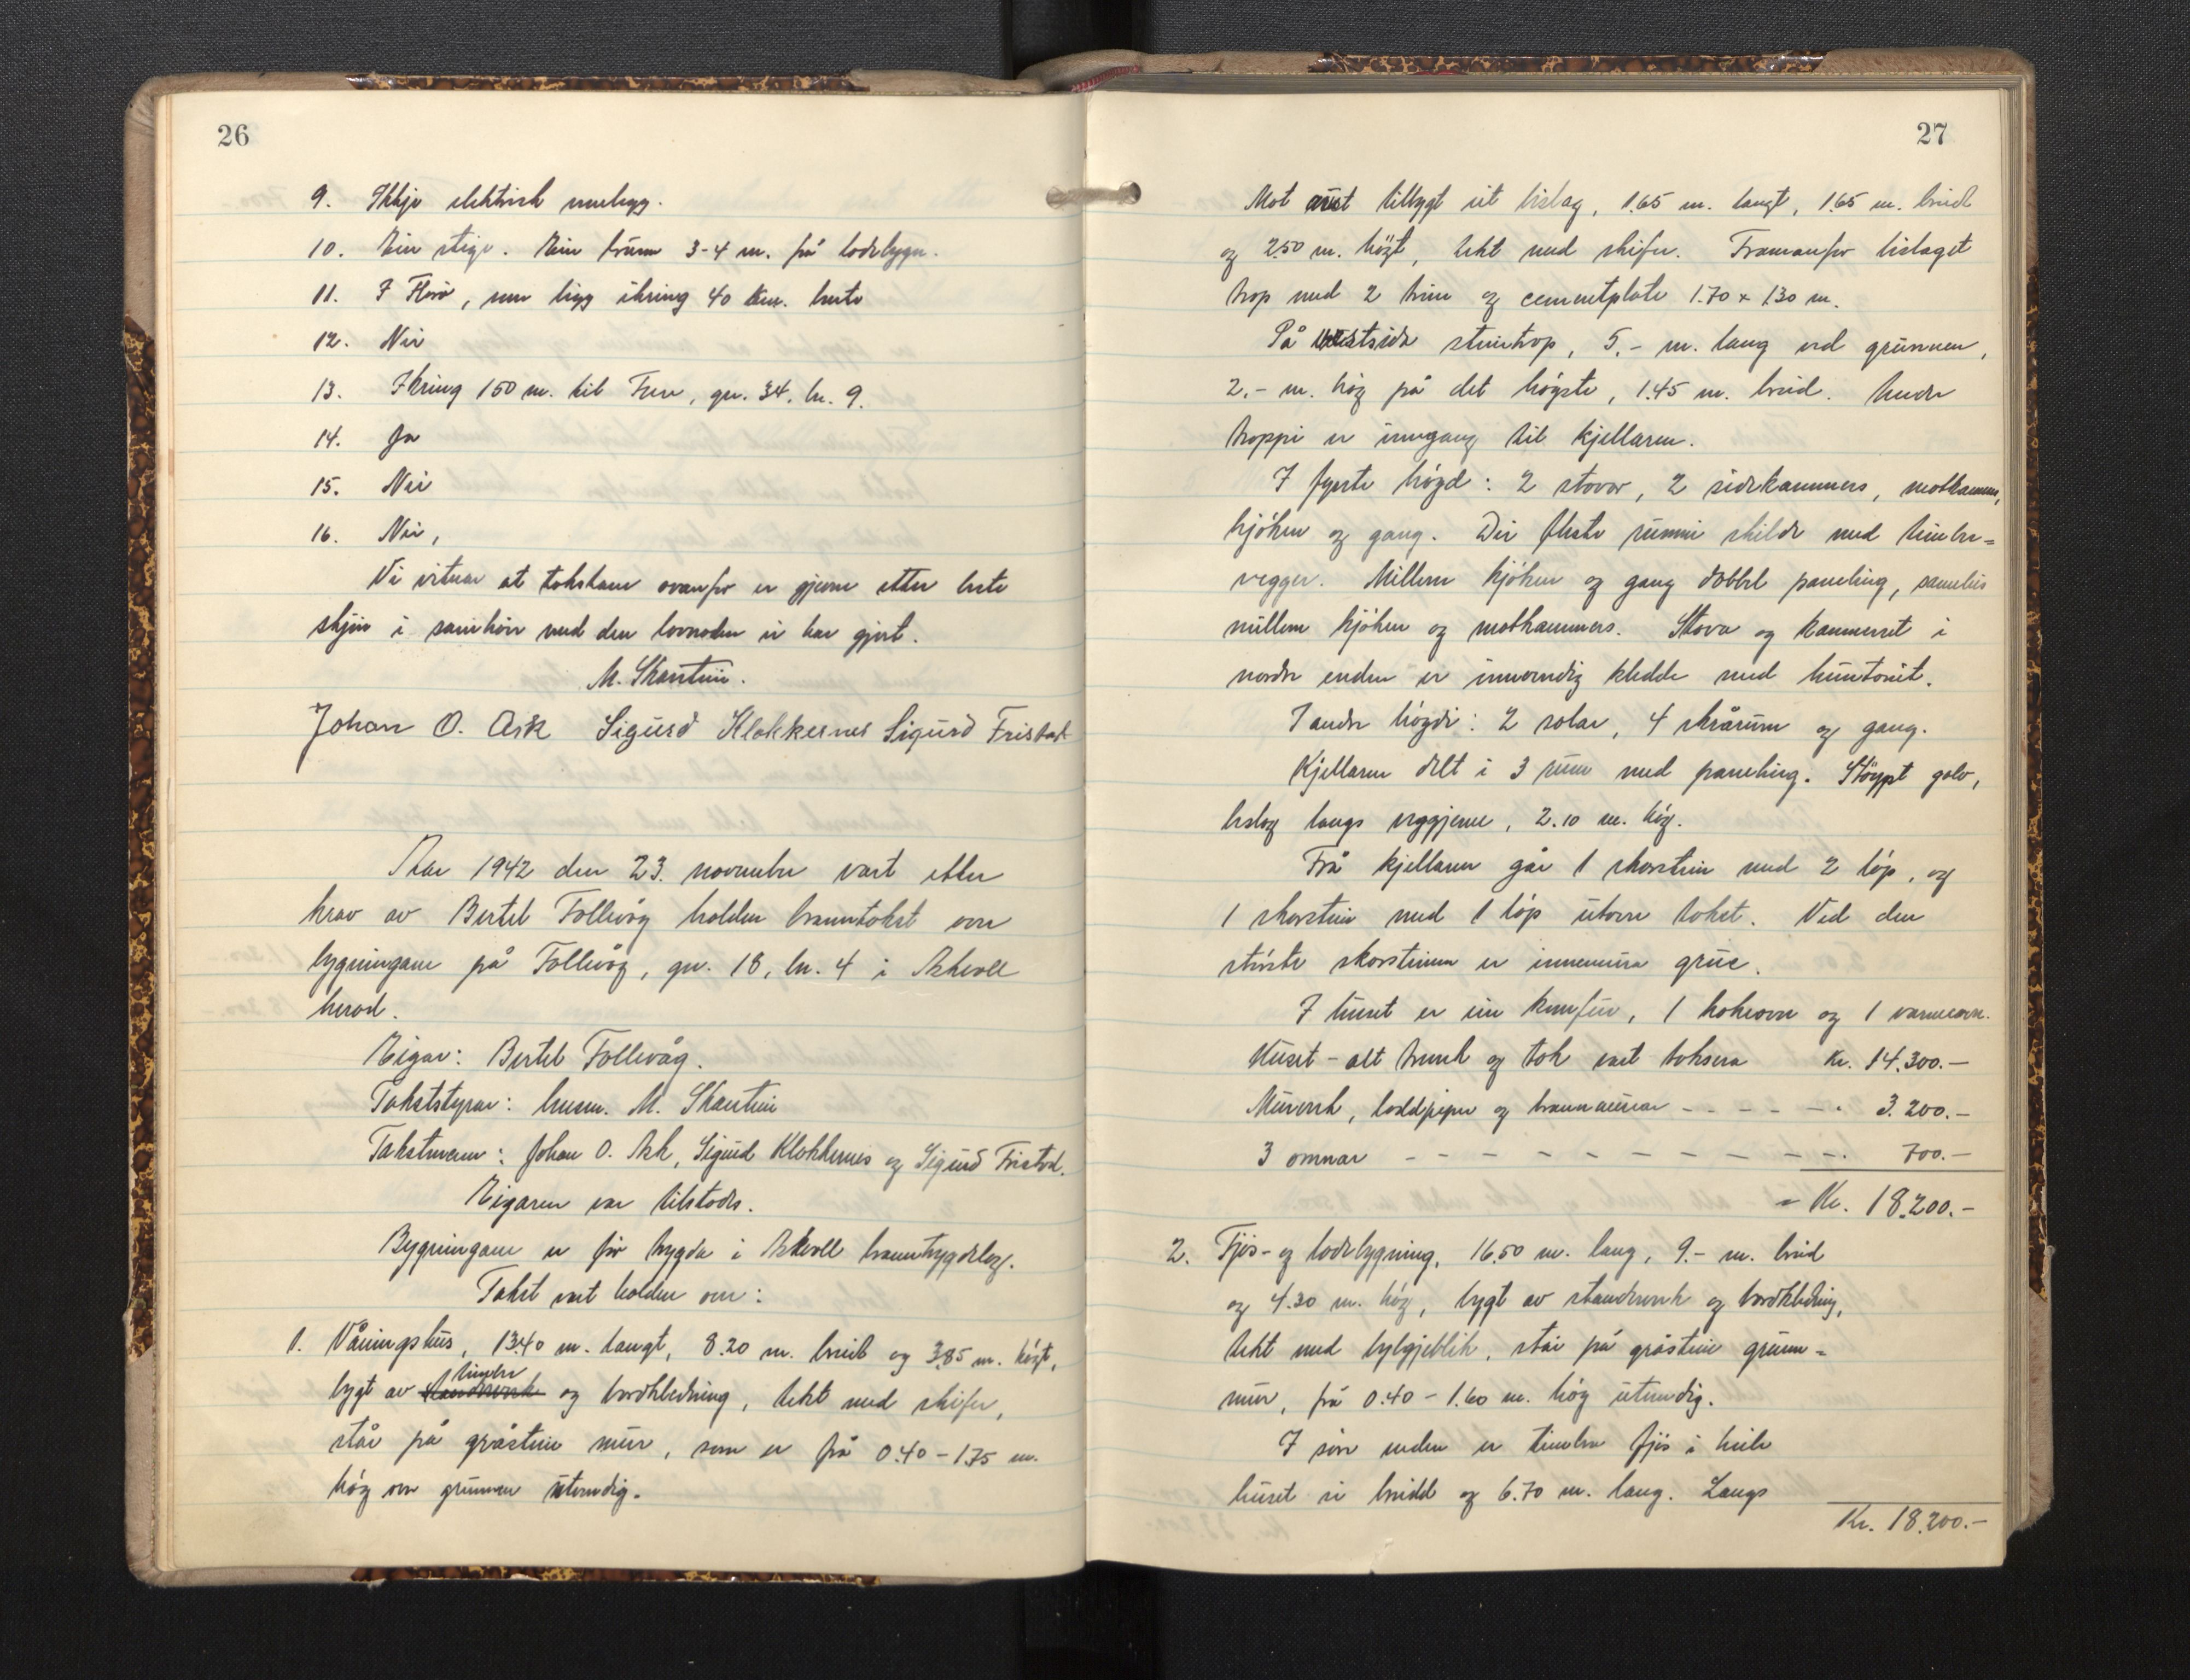 26
9. Ikkje elektrisk innlegg.
10. Ein stige. Ein brunn 3-4 m. frå lodebygn.
11. I Florø, som ligg ikring 40 km. borte
12. Nei
13. Ikring 150 m. til Ture, gn. 34, bn. 9.
14. Ja
15. Nei
16. Nei,
Vi vitnar at takstane ovanfor er gjevne etter beste
skjøn i samhøve med den lovnaden vi har gjort.
M. Skarstein.
Johan O. Ask Sigurd Klokkernes Sigurd Fristad
Aar 1942 den 23. november vart etter
krav av Bertel Follevåg halden branntakst over
bygningane på Follevåg, gn. 18, bn. 4 i Askvoll
herad.
Eigar: Bertel Follevåg.
Takststyrar: lensm. M. Skarstein
Takstmenn: Johan O. Ask, Sigurd Klokkernes og Sigurd Fristad.
Eigaren var tilstades.
Bygningane er før trygda i Askvoll branntrygdelag.
Takst vart halden over:
1. Våningshus, 13.40 m. langt, 8.20 m. breidt og 3.85 m. høgt,
bygt av standverk timber og bordkledning, tekt med skifer,
står på gråstein mur, som er frå 0.40 - 1.75 m.
høg over grunnen utvendig.
27
Mot aust tilbygt eit bislag, 1.65 m. langt, 1.65 m. breidt
og 2.50 m. høgt, tekt med skifer. Framanfor bislaget
trap med 2 trin og cementplate 1.70 x 1.30 m.
På vestsida steintrap, 5.- m. lang ved grunnen,
2.- m. høg på det høgste, 1.45 m. breid. Under
trappi er inngang til kjellaren.
I fyrste høgd: 2 stover, 2 sidekammers, matkammers,
kjøken og gang. Dei fleste rummi skilde med timber=
vegger. Millom kjøken og gang dobbel paneling, sameleis
millom kjøken og matkammers. Stova og kammerset i
nordre enden er innvendig kledde med huntonit.
I andre høgdi: 2 salar, 4 skrårum og gang.
Kjellaren delt i 3 rum med paneling. Støypt golv,
beslag langs veggjene, 2.10 m. høg.
Frå kjellaren går 1 skorstein med 2 løp, og
1 skorstein med 1 løp utover taket. Ved den
største skorsteinen er innemura grue.
I huset er ein komfur, 1 kokeovn og 1 varmeovn.
Huset - alt treverk og tak vart taksera Kr. 14.300.-
Murverk, loddpiper og brannmurar - - - - - 3.200.-
3 omnar - - - - - - - - - - 700.-
= Kr. 18.200.-
2. Fjøs- og lodebygning, 16.50 m. lang, 9.- m. breid
og 4.30 m. høg, bygt av standverk og bordkledning,
tekt med bylgjeblik, står på gråstein grunn=
mur, frå 0.40 - 1.60 m. høg utvendig.
I søre enden er timbra fjøs i heile
huset si breidd og 6.70 m. lang. Langs
Kr. 18.200.-